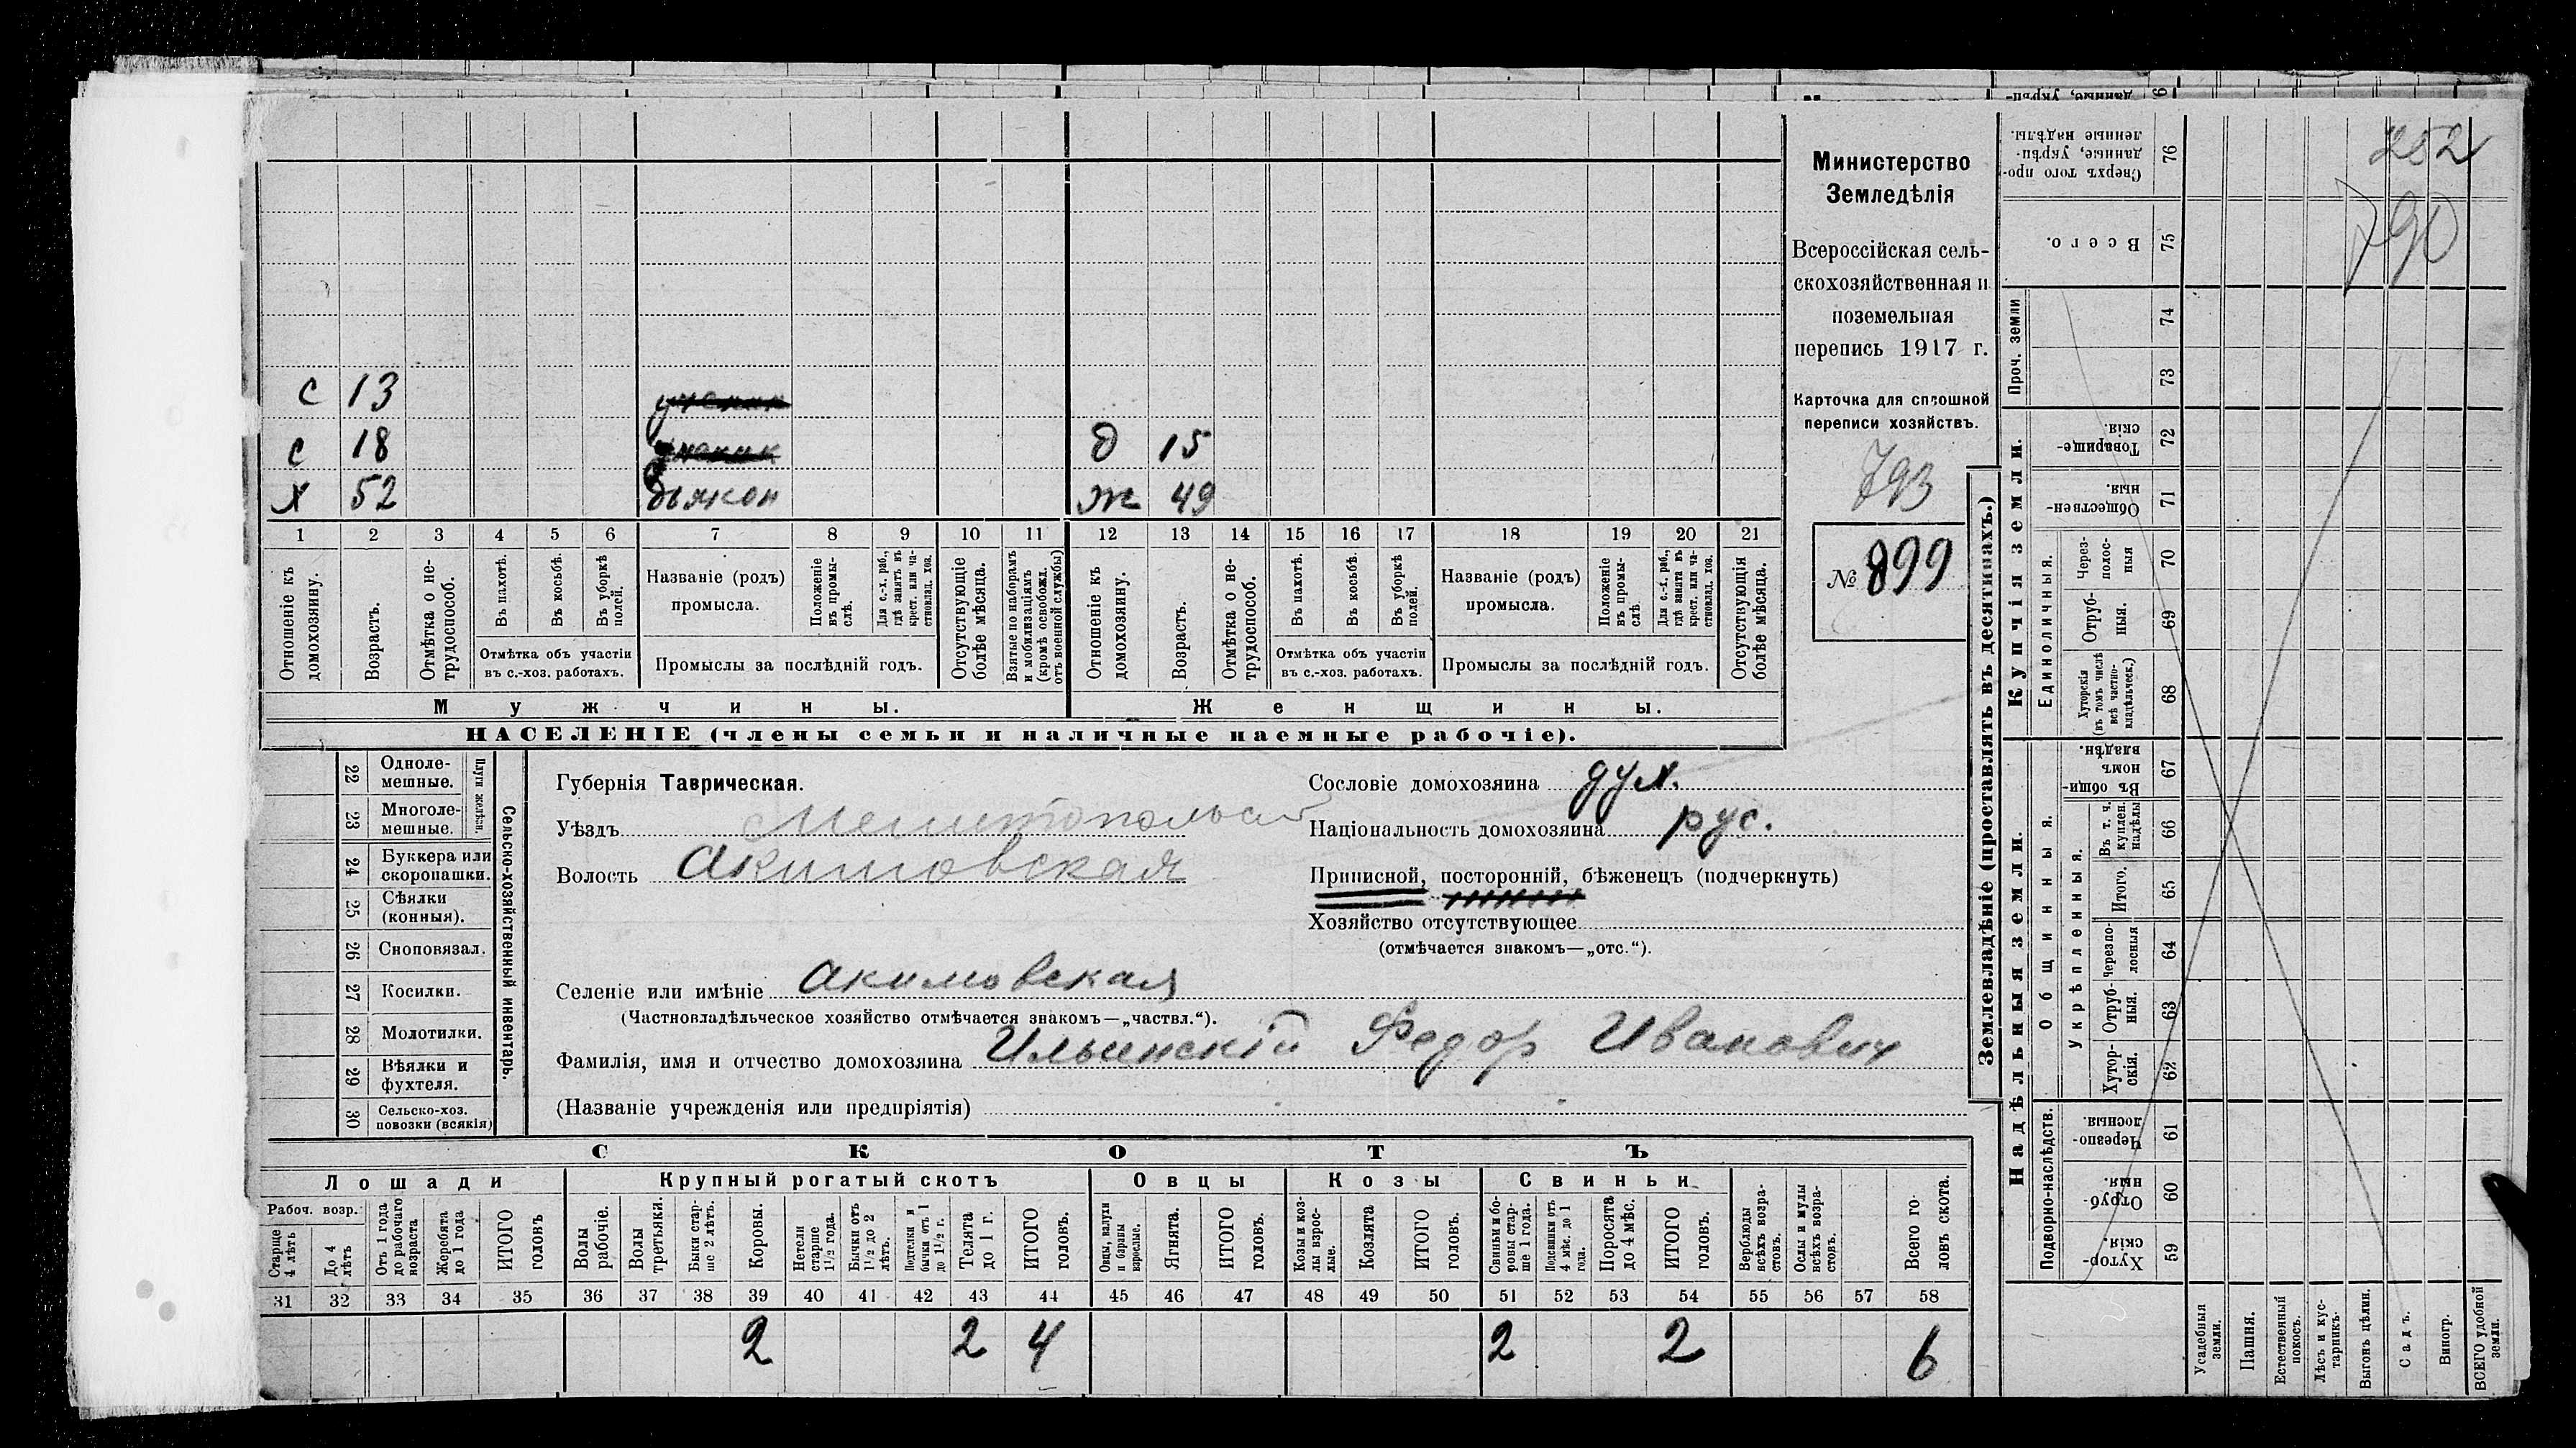 Министерство
Земледѣлія
Всероссійская сель-
скохозяйственная и
поземельная
перепись 1917 г.
Карточка для сплошной
переписи хозяйствъ.
793
№ 899
252
790
с 13 ученик
с 18 ученик д 15
х 52 дьякон ж 49
1 2 3 4 5 6 7 8 9 10 11 12 13 14 15 16 17 18 19 20 21
Отношеніе къ домохозяину.
Возрастъ.
Отмѣтка о не-трудоспособ.
Въ пахотѣ.
Въ косьбѣ.
Въ уборкѣ полей.
Отмѣтка объ участіи
въ с.-хоз. работахъ.
Названіе (родъ)
промысла.
Положеніе въ промы-слѣ.
Для с.-х. раб., гдѣ занятъ въ крест. или ча-стновлад. хоз.
Промыслы за послѣдній годъ.
Отсутствующіе болѣе мѣсяца.
Взятые по наборамъ и мобилизаціямъ (кромѣ освобожд. отъ военной службы)
Отношеніе къ домохозяину.
Возрастъ.
Отмѣтка о не-трудоспособ.
Въ пахотѣ.
Въ косьбѣ.
Въ уборкѣ полей.
Отмѣтка объ участіи
въ с.-хоз. работахъ.
Названіе (родъ)
промысла.
Положеніе въ промы-слѣ.
Для с.-х. раб., гдѣ занята въ крест. или ча-стновлад. хоз.
Промыслы за послѣдній годъ.
Отсутствующія болѣе мѣсяца.
Мужчины. Женщины.
НАСЕЛЕНІЕ (члены семьи и наличные наемные рабочіе).
Сельско-хозяйственный инвентарь.
Плуги желѣзн.
22 Одноле-мешные.
23 Многоле-мешные.
24 Буккера или скоропашки.
25 Сѣялки (конныя).
26 Сноповязал.
27 Косилки.
28 Молотилки.
29 Вѣялки и фухтеля.
30 Сельско-хоз. повозки (всякія)
Губернія Таврическая.
Уѣздъ Мелитопольск
Волость Акимовская
Сословіе домохозяина дух.
Національность домохозяина рус.
Приписной, посторонній, бѣженецъ (подчеркнуть)
Хозяйство отсутствующее
(отмѣчается знакомъ—„отс.“).
Селеніе или имѣніе Акимовская
(Частновладѣльческое хозяйство отмѣчается знакомъ—„частвл.“).
Фамилія, имя и отчество домохозяина Ильинскій Федор Иванович
(Названіе учрежденія или предпріятія)
СКОТЪ
Лошади Крупный рогатый скотъ Овцы Козы Свиньи
Рабоч. возр.:
Старше 4 лѣтъ
До 4 лѣтъ
Отъ 1 года до рабочаго возраста
Жеребята до 1 года
ИТОГО головъ
Волы рабочіе.
Волы третьяки.
Быки стар-ше 2 лѣтъ.
Коровы.
Нетели старше 1½ года.
Бычки отъ 1½ до 2 лѣтъ.
Подтелки и бычки отъ 1 до 1½ г.
Телята до 1 г.
ИТОГО головъ.
Овцы, валухи и бараны взрослые.
Ягнята.
ИТОГО головъ.
Козы и коз-лы взрос-лые.
Козлята
ИТОГО головъ.
Свиньи и бо-ровы стар-ше 1 года.
Подсвинки отъ 4 мѣс. до 1 года.
Поросята до 4 мѣс.
ИТОГО головъ.
Верблюды всѣхъ возра-стовъ.
Ослы и мулы всѣхъ возра-стовъ.
Всего го-ловъ скота.
31 32 33 34 35 36 37 38 39 40 41 42 43 44 45 46 47 48 49 50 51 52 53 54 55 56 57 58
2 2 4 2 2 6
Землевладѣніе (проставлять въ десятинахъ.)
Надѣльныя земли.
Купчія земли.
Проч. земли
Подворно-наслѣдств.
Общинныя.
Укрѣпленныя.
Единоличныя.
Сверхъ того про-данные, укрѣп-ленные надѣлы. 76
Всего. 75
74
73
Товарище-скія. 72
Обществен-ныя. 71
Через-полос-ныя 70
Отруб-ныя. 69
Хуторскія (въ томъ числѣ всѣ частно-владѣльческ.) 68
Въ общин-номъ владѣн. 67
Въ т. ч. куплен. надѣлы 66
Итого. 65
Черезпо-лосныя 64
Отруб-ныя. 63
Хутор-скія. 62
Черезпо-лосныя. 61
Отруб-ныя. 60
Хутор-скія. 59
Усадебныя земли.
Пашня.
Естественный покосъ.
Лѣсъ и кус-тарникъ.
Выгонъ цѣлин.
Садъ.
Виногр.
ВСЕГО удобной земли.